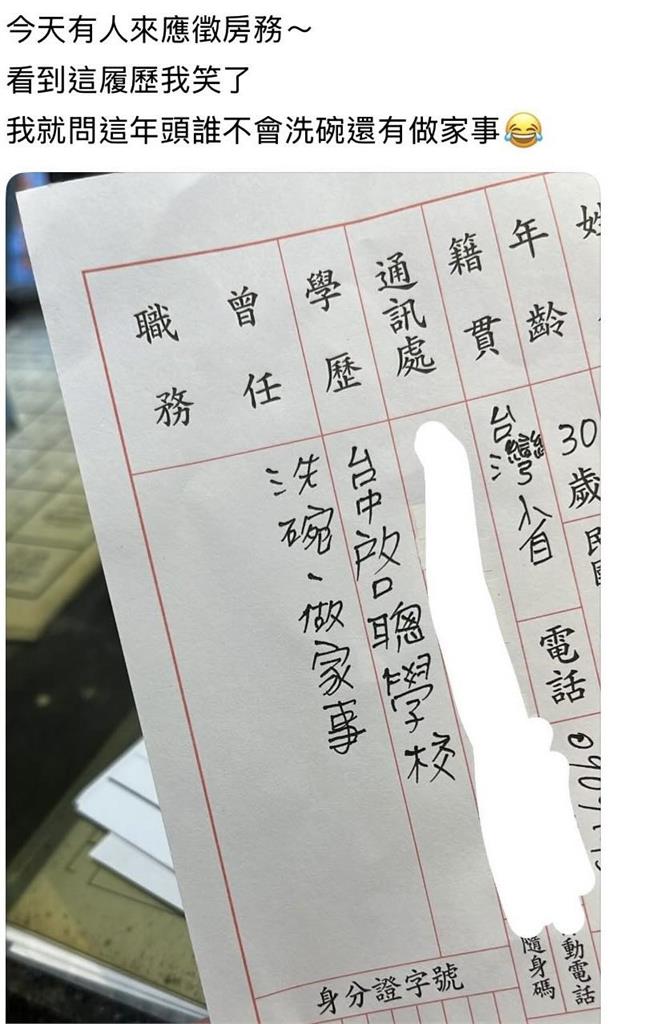 今天有人來應徵房務～
看到這履歷我笑了
我就問這年頭誰不會洗碗還有做家事😂
年齡
30歲
民國
電話
籍貫
台灣省
通訊處
學歷
台中啟聰學校
曾任職務
洗碗、做家事
身分證字號
隨身碼
動電話